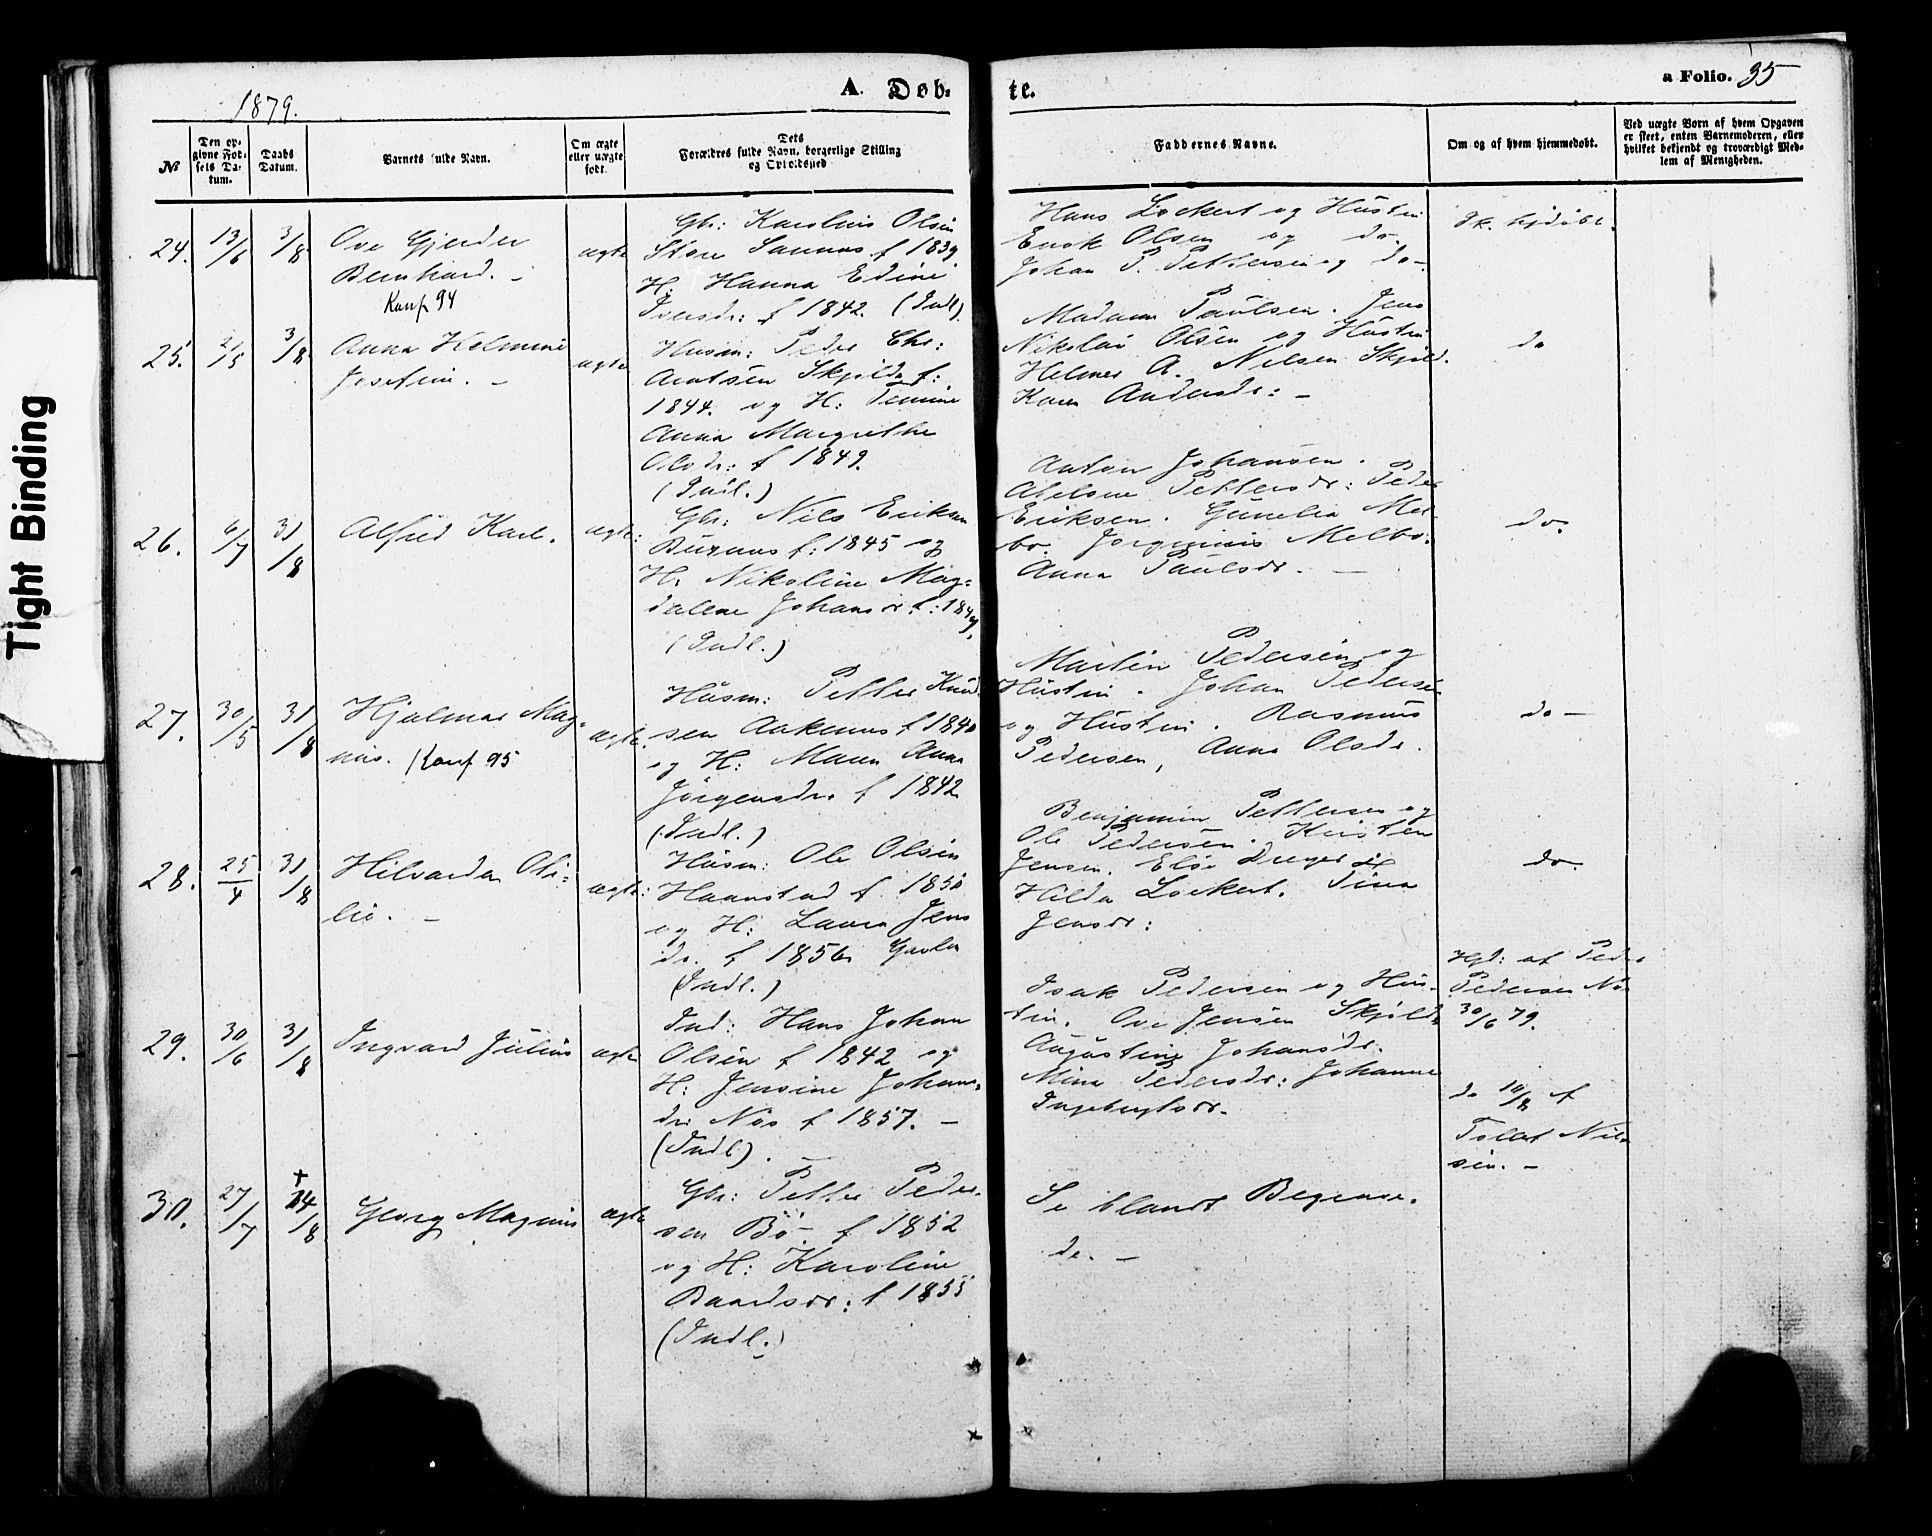 Tight Binding
1879.
A. Døb-
te.
a Folio. 35
№
Den op-
givne Fød-
sels Da-
tum.
Daabs
Datum.
Barnets fulde Navn.
Om ægte
eller uægte
født.
Dets
Forældres fulde Navn, borgerlige Stilling
og Opholdssted
Faddernes Navne.
Om og af hvem hjemmedøbt.
Ved uægte Børn af hvem Opgaven
er skeet, enten Barnemoderen, eller
hvilket bekjendt og troværdigt Med-
lem af Menigheden.
24. 13/6 3/8
Ove Gjerder
Bernhard. -
Konf 94
ægte
Gbr: Karolius Olsen
Store Sannæs f 1839
H: Hanna Edine
Iversdr: f 1842. (Indl)
Hans Lockert og Hustru
Enok Olsen og do.
Johan P. Pettersen og do-.
Ik. hjdøbt.
25. 2/5 3/8
Anna Helmine
Josefine. -
ægte
Husm: Peder Chr:
Arntsen Skjolde f:
1844. og H: 
Anna Margrethe
Olsdr: f 1849.
(Indl.)
Madam Paulsen. Jens
Nikolai Olsen og Hustru
Helmer A. Nilsen Skjold.
Karen Andersdr: -
do
26. 6/7 31/8
Alfred Karl.
ægte:
Gbr: Nils Eriksen
f: 1845 og
H: Nikoline Mag-
dalene Johansdr. f: 1849.
(Indl.)
Anton Johansen.
Abelone Pettersdr: Peder
Eriksen. Gunelia Mel-
bo. Melbo.
Anna Paulsdr. -
do.
27. 30/5 31/8
Hjalmar Mag-
nus. Konf 95
ægte.
Husm: Petter Knud
sen f 1840
og H: Maren Anna
Jørgensdr. f 1842
(Indl.)
Martin Pedersen og
Hustru. Johan Pedersen
og Hustru. Rasmus
Pedersen, Anna Olsdr.
do -
28. 25/4 31/8
Hilvarda Oli-
lie. -
ægte:
Husm: Ole Olsen
Haanstad f 1850
og H: Laura Jens
dr. f 1856
(Indl.)
Benjamin Pettersen og
Ole Pedersen. Kirsten
Jensen. Elise Dreyer
Hilda Lockert. Tina
Jensdr:
do.
29. 30/6 31/8
Ingvard Julius
ægte
Ind: Hans Johan
Olsen f 1842 og
H: Jensine Johans-
dr. Nøs f 1857. -
(Indl).
Isak Pedersen og Hus-
tru. Ove Jensen Skjolde
Augustine Johansdr.
Mina Pedersdr: Johanne
Ingebrigtsdr.
Hjd: af Peder
Pedersen Nøs
30/6 79.
do 10/8 af
Tollef Nil-
sen. -
30. 27/7 † 14/8
Georg Magnus
ægte
Gbr: Petter Peder-
sen Bø. f 1852
og H: Karoline
Baardsdr: f 1855
(Indl.)
Se blandt Begrave-
de. -